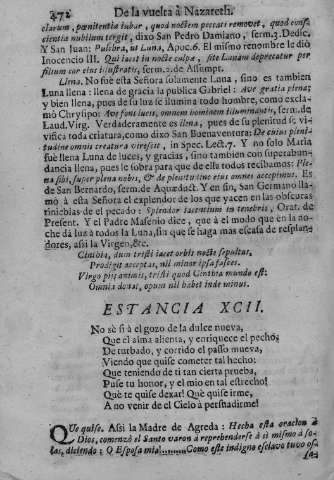 472 De la vuelta à Nazareth.
clarum, pœnitentiæ iubar, quod noctem peccati removet, quod consci-
cientiæ nubilum tergit, dixo San Pedro Damiano, serm.3.Dedic.
Y San Juan: Pulchra, ut Luna, Apoc.6. El mismo renombre le diò
Inocencio III. Qui iacet in nocte culpæ, iste Lunam deprecetur per
filium cor eius illustratis, serm.2.de Assumpt.
Llena. No fuè esta Señora solamente Luna, sino es tambien
Luna llena: llena de gracia la publica Gabriel: Ave gratia plena;
y bien llena, pues de su luz se ilumina todo hombre, como excla-
mò Chrysipo: Ave fons lucis, omnem hominem illuminantis, serm.de
Laud.Virg. Verdaderamente es llena, pues de su plenitud se vi-
vifica toda criatura, como dixo San Buenaventura: De cuius pleni-
tudine omnis creatura virescit, in Spec. Lect.7. Y no solo Maria
fuè llena Luna de luces, y gracias, sino tambien con superabun-
dancia llena, pues le sobra para que de ella todos recibamos: Ple-
na sibi, super plena nobis, & de plenitudine eius omnes accepimus. Es
de San Bernardo, serm.de Aquæduct. Y en fin, San Germano lla-
mò à esta Señora el explendor de los que yacen en las obscuras
tinieblas de el pecado: Splendor iacentium in tenebris, Orat. de
Present. Y el Padre Masenio dice, que à el modo que en la no-
che dà luz à todos la Luna, sin que se haga mas escasa de resplan-
dores, assi la Virgen, &c.
Cinthia, dum tristi iacet orbis nocte sepultus,
Prodigit acceptas, nil minor ipsa faces.
Virgo piis animis, tristi quod Cinthia mundo est:
Omnia donat, opum nil habet inde minus.
ESTANCIA XCII.
No sè si à el gozo de la dulce nueva,
Que el alma alienta, y enriquece el pecho;
De turbado, y corrido el passo mueva,
Viendo que quise cometer tal hecho:
Que teniendo de ti tan cierta prueba,
Puse tu honor, y el mio en tal estrecho!
Què te quise dexar! Què quise irme,
A no venir de el Cielo à persuadirme!
QUe quise. Assi la Madre de Agreda: Hecha esta oracion à
Dios, comenzò el Santo varon à reprehenderse à sì mismo à so-
las, diciendo: O Esposa mia........Como este indigno esclavo tuvo os-